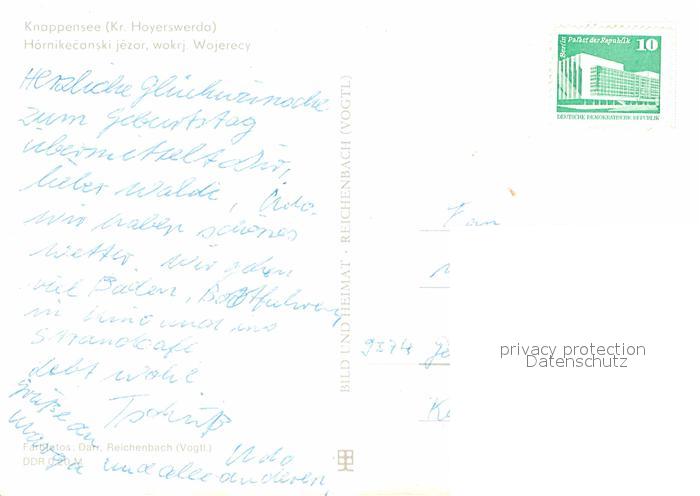 Knappensee (Kr. Hoyerswerda)
Hórnikečanski jězor, wokrj. Wojerecy
Herzliche Glückwünsche
zum Geburtstag
übermittelt Dir,
lieber Waldi, Udo.
Wir haben schönes
Wetter. Wir gehen
viel Baden, Bootfahren,
in Kino und ins
Strandcafe
Lebt wohl
Tschüß
Udo
Grüße an
und alle anderen
Farbfotos: Darr, Reichenbach (Vogtl.)
DDR 0,20 M
BILD UND HEIMAT · REICHENBACH (VOGTL)
Berlin Palast der Republik
10
DEUTSCHE DEMOKRATISCHE REPUBLIK
Fam
privacy protection
Datenschutz